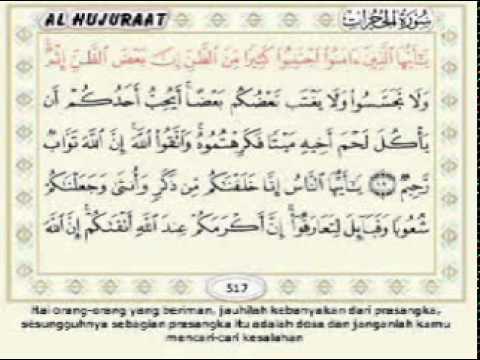 AL HUJURAAT سُورَةُ الْحُجُرَات
يَـٰٓأَيُّهَا ٱلَّذِينَ ءَامَنُوا۟ ٱجْتَنِبُوا۟ كَثِيرًا مِّنَ ٱلظَّنِّ إِنَّ بَعْضَ ٱلظَّنِّ إِثْمٌ ۖ
وَلَا تَجَسَّسُوا۟ وَلَا يَغْتَب بَّعْضُكُم بَعْضًا ۚ أَيُحِبُّ أَحَدُكُمْ أَن
يَأْكُلَ لَحْمَ أَخِيهِ مَيْتًا فَكَرِهْتُمُوهُ ۚ وَٱتَّقُوا۟ ٱللَّهَ ۚ إِنَّ ٱللَّهَ تَوَّابٌ
رَّحِيمٌ ١٢ يَـٰٓأَيُّهَا ٱلنَّاسُ إِنَّا خَلَقْنَـٰكُم مِّن ذَكَرٍ وَأُنثَىٰ وَجَعَلْنَـٰكُمْ
شُعُوبًا وَقَبَآئِلَ لِتَعَارَفُوٓا۟ ۚ إِنَّ أَكْرَمَكُمْ عِندَ ٱللَّهِ أَتْقَىٰكُمْ ۚ إِنَّ ٱللَّهَ
517
Hai orang-orang yang beriman, jauhilah kebanyakan dari prasangka,
sesungguhnya sebagian prasangka itu adalah dosa dan janganlah kamu
mencari-cari kesalahan